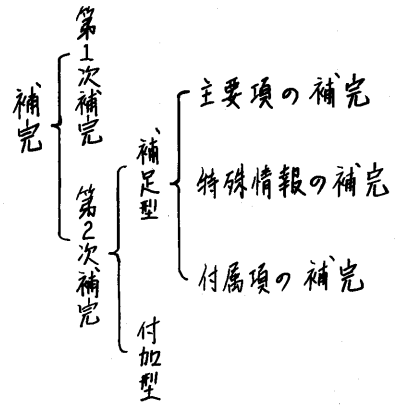 補完
第1次補完
第2次補完
補足型
付加型
主要項の補完
特殊情報の補完
付属項の補完